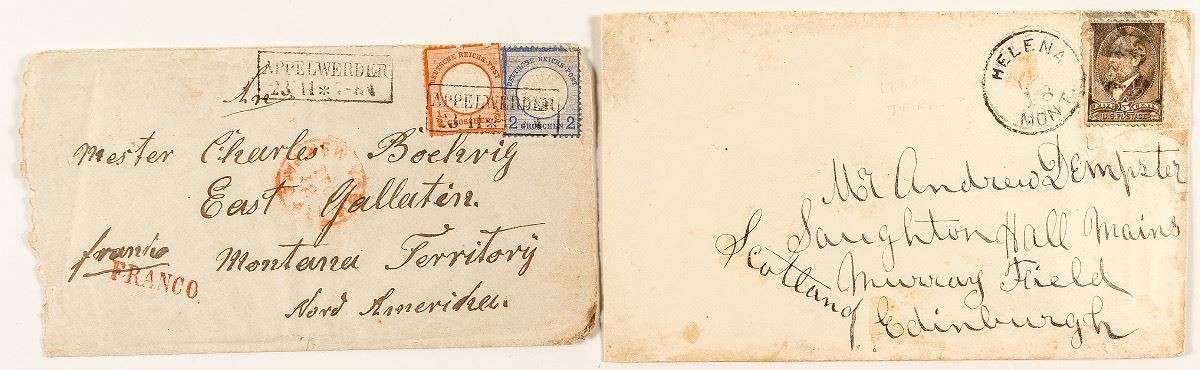 APPELWERDER
23 11 *
DEUTSCHE REICHS-POST
1/2 GROSCHEN 1/2
DEUTSCHE REICHS-POST
2 GROSCHEN 2
APPELWERDER
23 11 *
An
Mester Charles Boehrig
East Gallatin.
franko Montana Territory
FRANCO.
Nord Amerika.
HELENA
18
MONT.
FIVE 5 CENTS
U.S. POSTAGE
Mr Andrew Dempster
Saughton Hall Mains
Murray Field
Edinburgh
Scotland